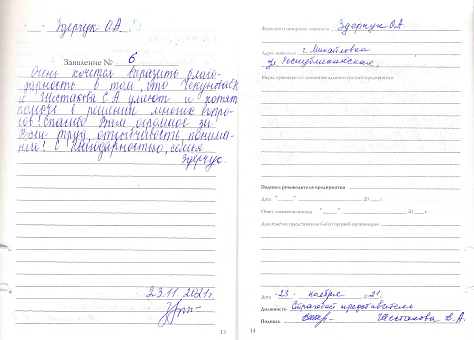 Здерчук О.А.
Заявление № 6
Очень хочется выразить благо-
дарность в том, что
и Шестакова Е.А умеют и хотят
помочь в решении многих вопро-
сов! Спасибо Вам огромное за
Ваш труд, отзывчивость, понима-
ние! С благодарностью, семья
Здерчук.
23.11 2021г
13
Фамилия и инициалы заявителя Здерчук О.А.
Адрес заявителя г. Михайловка
ул Республиканская,
Меры, принятые по заявлению администрацией предприятия:
Подпись руководителя предприятия
Дата " " 20 г.
Ответ заявителю послан " " 20 г.
Для отметок представителя
Дата 23 ноября 2021.
Должность Страховой представитель
Подпись Шестакова Е.А.
14